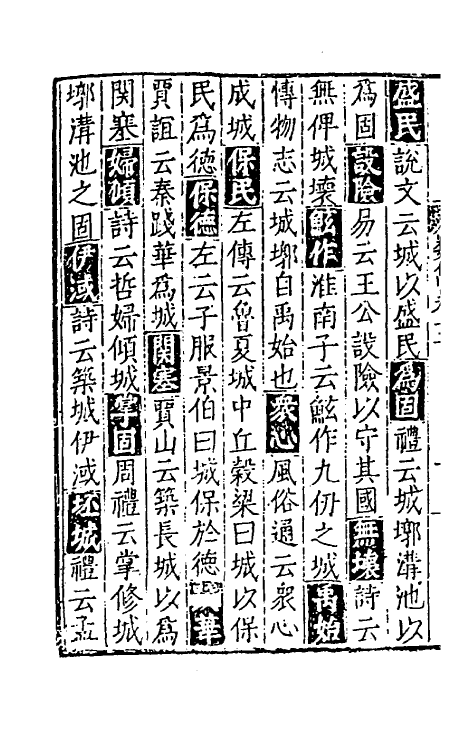 盛民說文云城以盛民為固禮云城墎溝池以
為固設險易云王公設險以守其國無壞詩云
無俾城壞鮌作淮南子云鮌作九仞之城禹始
博物志云城墎自禹始也衆心風俗通云衆心
成城保民左傳云魯夏城中丘穀梁曰城以保
民為德保德左云子服景伯曰城保於德華
賈誼云秦踐華為城関塞賈山云築長城以為
関塞婦傾詩云哲婦傾城掌固周禮云掌修城
墎溝池之固伊淢詩云築城伊淢坯城禮云孟